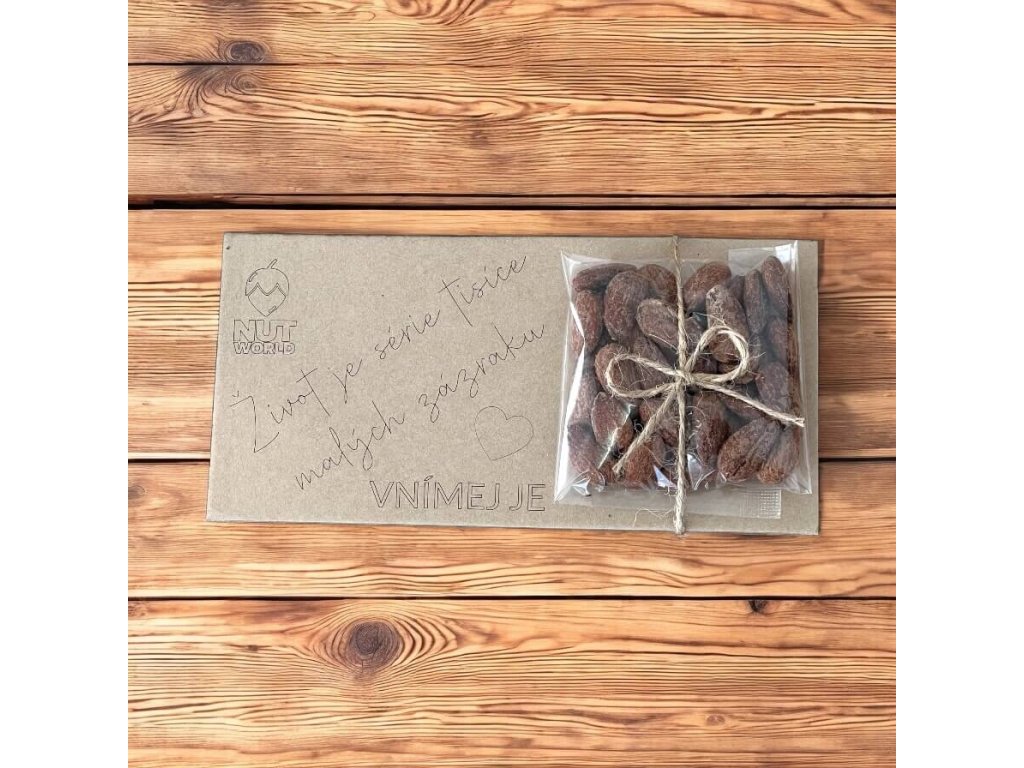 NUT
WORLD
Život je série tisíce
malých zázraku
VNÍMEJ JE